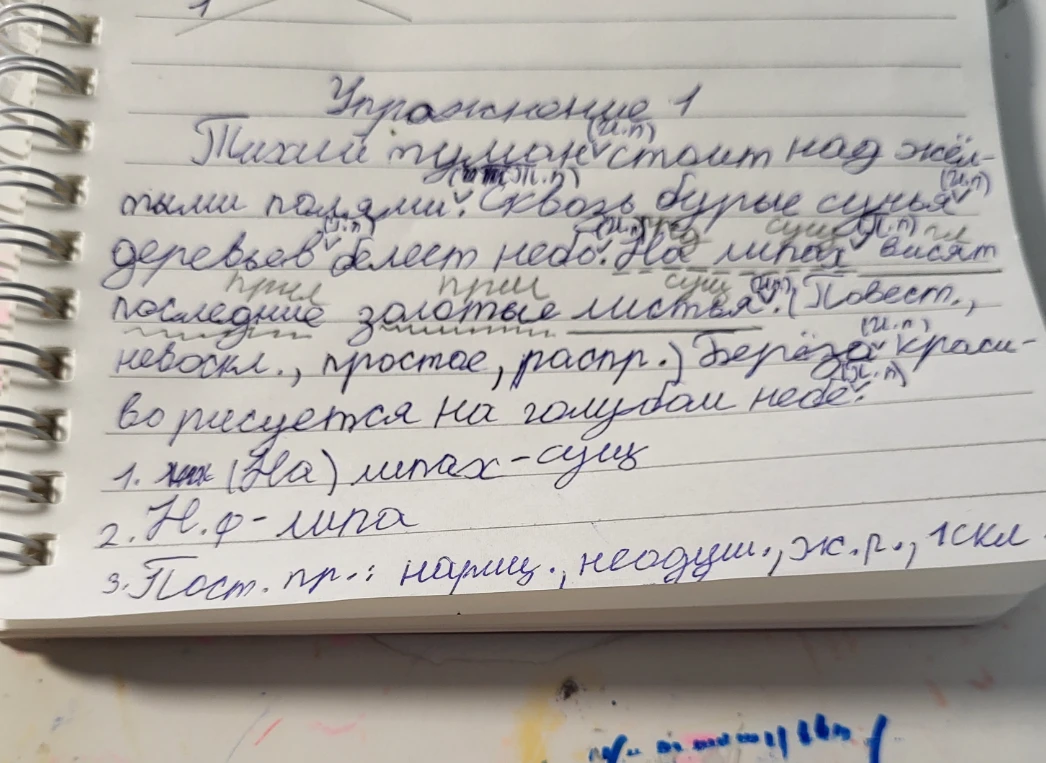 1
Упражнение 1
(И.п)
Тихий туман стоит над жёл-
(П.п) (И.п)
тыми полями. Сквозь бурые сучья
(И.п) (И.п) сущ (П.п) гл
деревьев белеет небо. На липах висят
прил прил сущ (И.п)
последние золотые листья. (Повест.,
невоскл., простое, распр.) Берёза краси-
(И.п)
(П.п)
во рисуется на голубом небе.
1. (На) липах - сущ
2. Н.ф - липа
3. Пост. пр.: нариц., неодуш., ж.р., 1 скл.